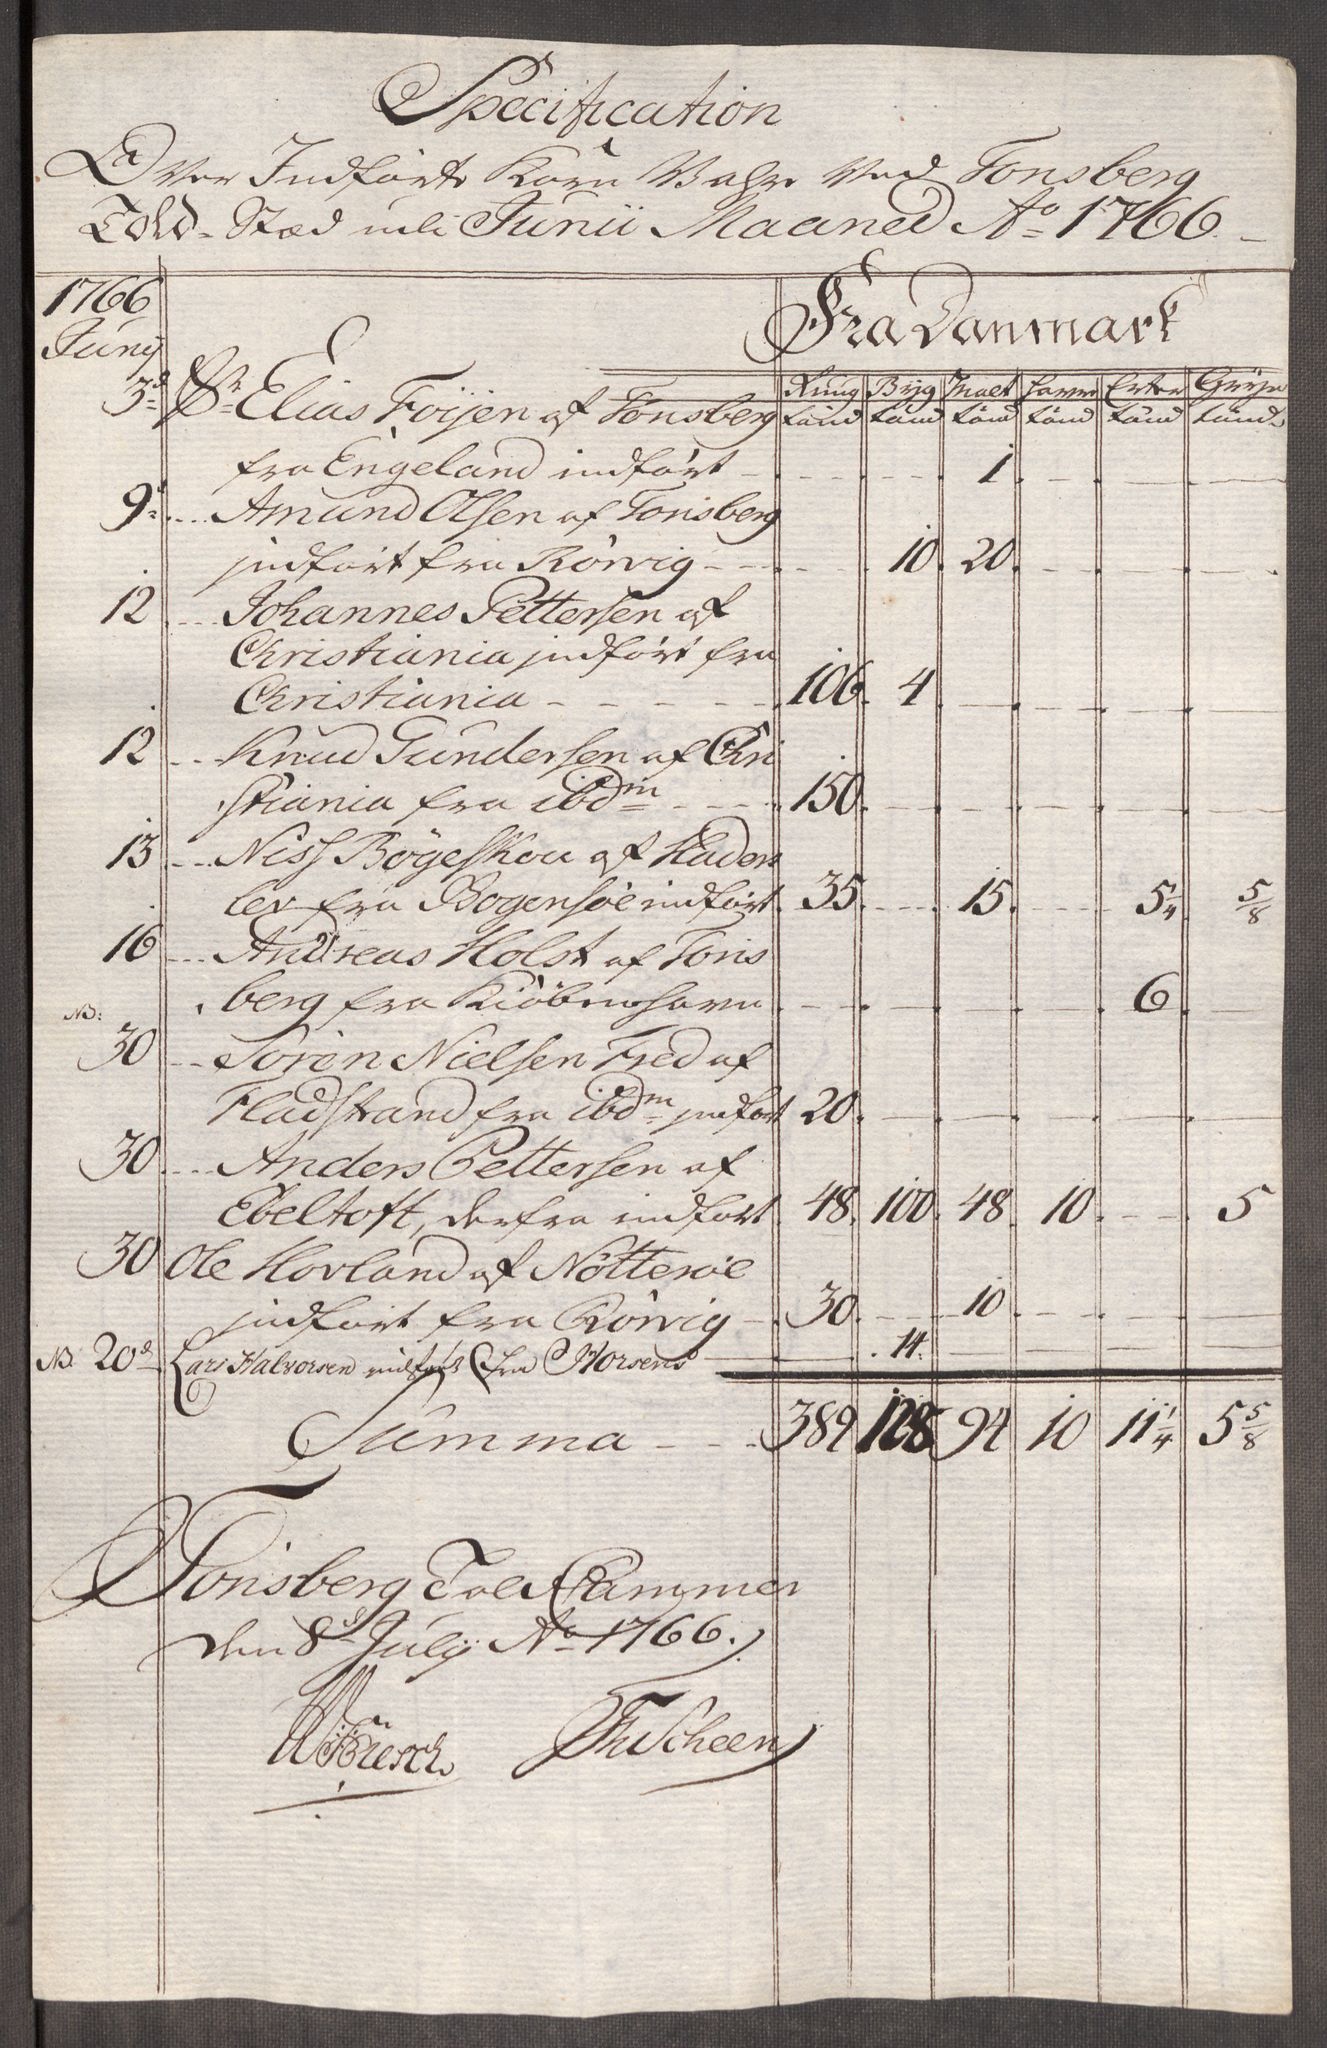 Specification
Over Indførte Korn Vahre Ved Tonsberg
Told-Stæd udi Junii Maaned Ao 1766
1766 Fra Danmark
Junij
Rüug Byg Malt Havre Erter Gryn
tønd tønd tønd tønd tønd tønd
3de Sr Elias Foijen af Tonsberg
fra Engeland indført 1
9de Amund Olsen af Tonsberg
indført fra Rörvig 10 20
12 Johannes Pettersen af
Christiania indført fra
Christiania 106 4
12 Knud Gundersen af Chri
stiania fra ibdm 150
13 Niss Bøgeskou af Haders
lev fra Bogensøe indført 35 15 5 1/4 5/8
16 Andreas Holst af Tons
berg fra Kiøbenhavn 6
NB:
30 Sören Nielsen Fred af
Fladstrand fra ibdm indført 20
30 Anders Pettersen af
Ebeltoft, derfra indført 48 100 48 10 5
30 Ole Hovland af Nötteröe
indført fra Rörvig 30 10
NB. 20de Lars Halvorsen indført fra Horsens 14
Summa 389 128 94 10 11 1/4 5 5/8
Tonsberg Told Cammer
den 8de Julij Ao 1766.
FhScheen